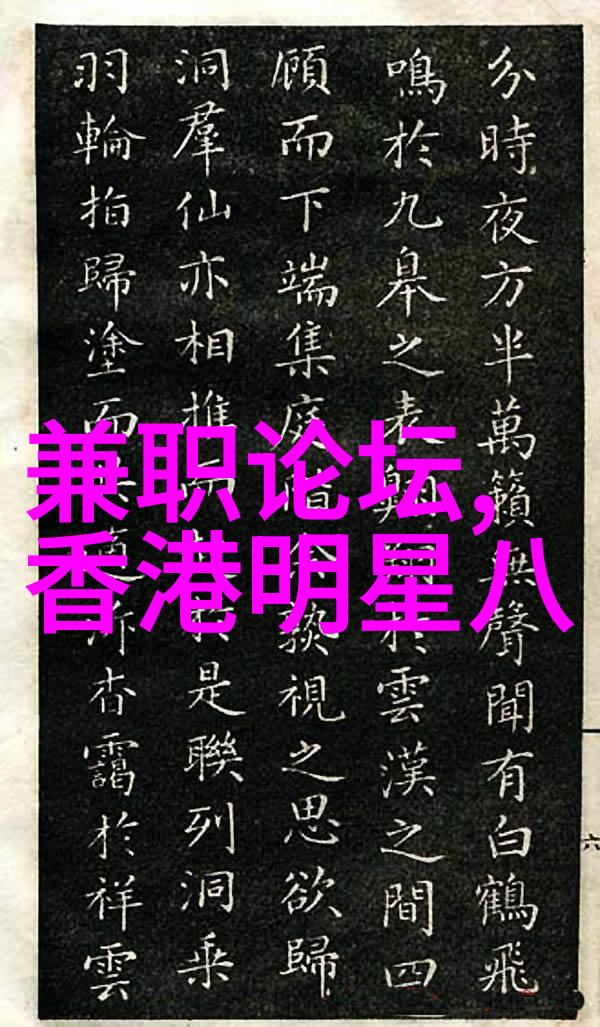 兼职论坛,
香港明星八
分時夜方半萬籟無聲聞有白鶴飛
鳴於九皋之表翱於雲漢之間四
顧而下端集庭階孰視之思欲歸
洞羣仙亦相推而於是聯列洞乘
羽輪指歸塗而泝杳靄於祥雲
六